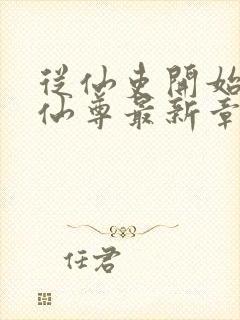 從仙吏開始
仙尊最新章
任君